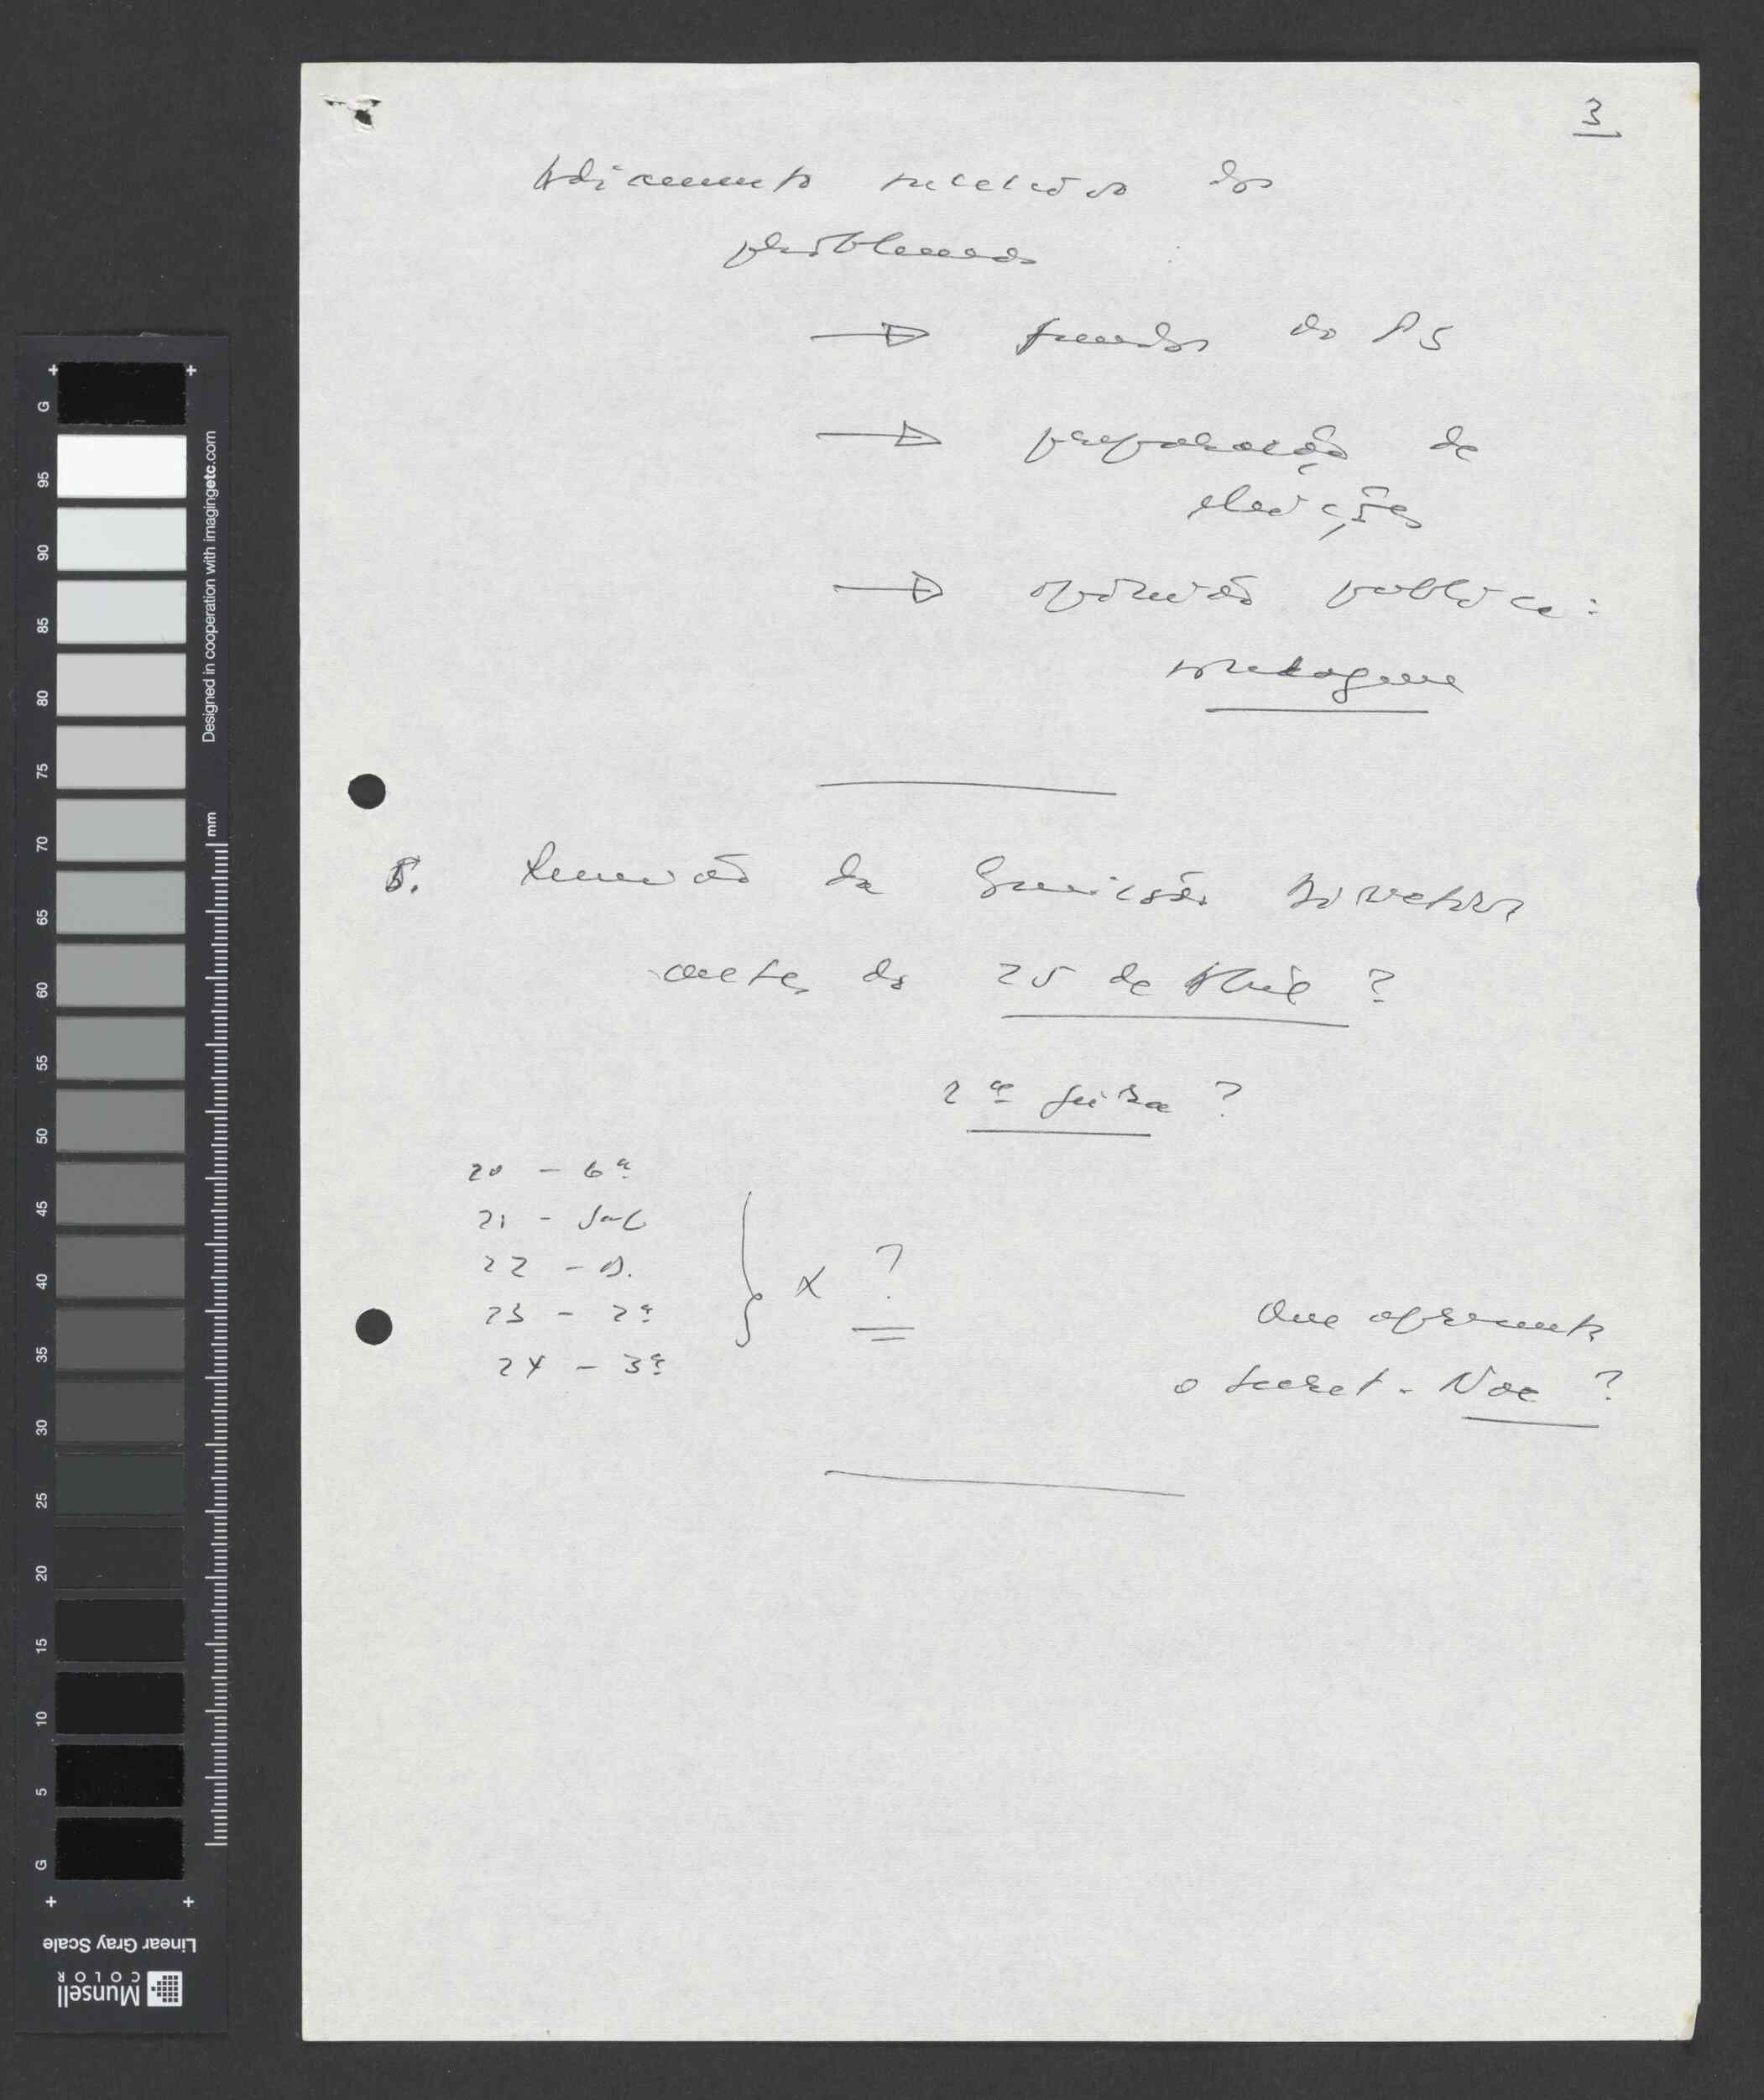 3
Adiamento sucessivo dos
problemas
→ fundos do PS
→ preparação de
eleições
→ opinião pública:
sondagem
5. Reunião da Comissão Directiva
antes do 25 de Abril ?
2ª feira ?
20 - 6ª
21 - Sab
22 - D.
23 - 2ª
24 - 3ª
x ?
Que apresenta
o Secret. Nac ?
G
95
90
85
80
75
70
65
60
55
50
45
40
35
30
25
20
15
10
5
G
Designed in cooperation with imagingetc.com
mm
Linear Gray Scale
Munsell
COLOR